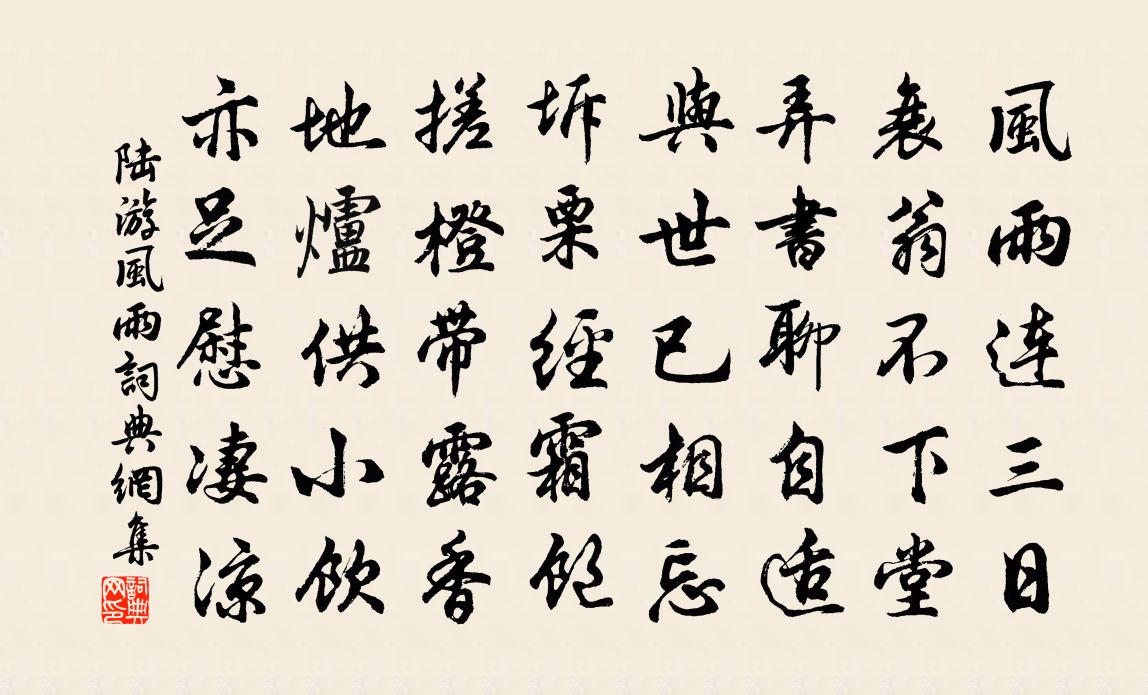 風雨連三日
衰翁不下堂
弄書聊自適
與世已相忘
坼栗經霜飽
搓橙帶露香
地爐供小飲
亦足慰淒涼
陸游風雨詞典網集
詞典网印